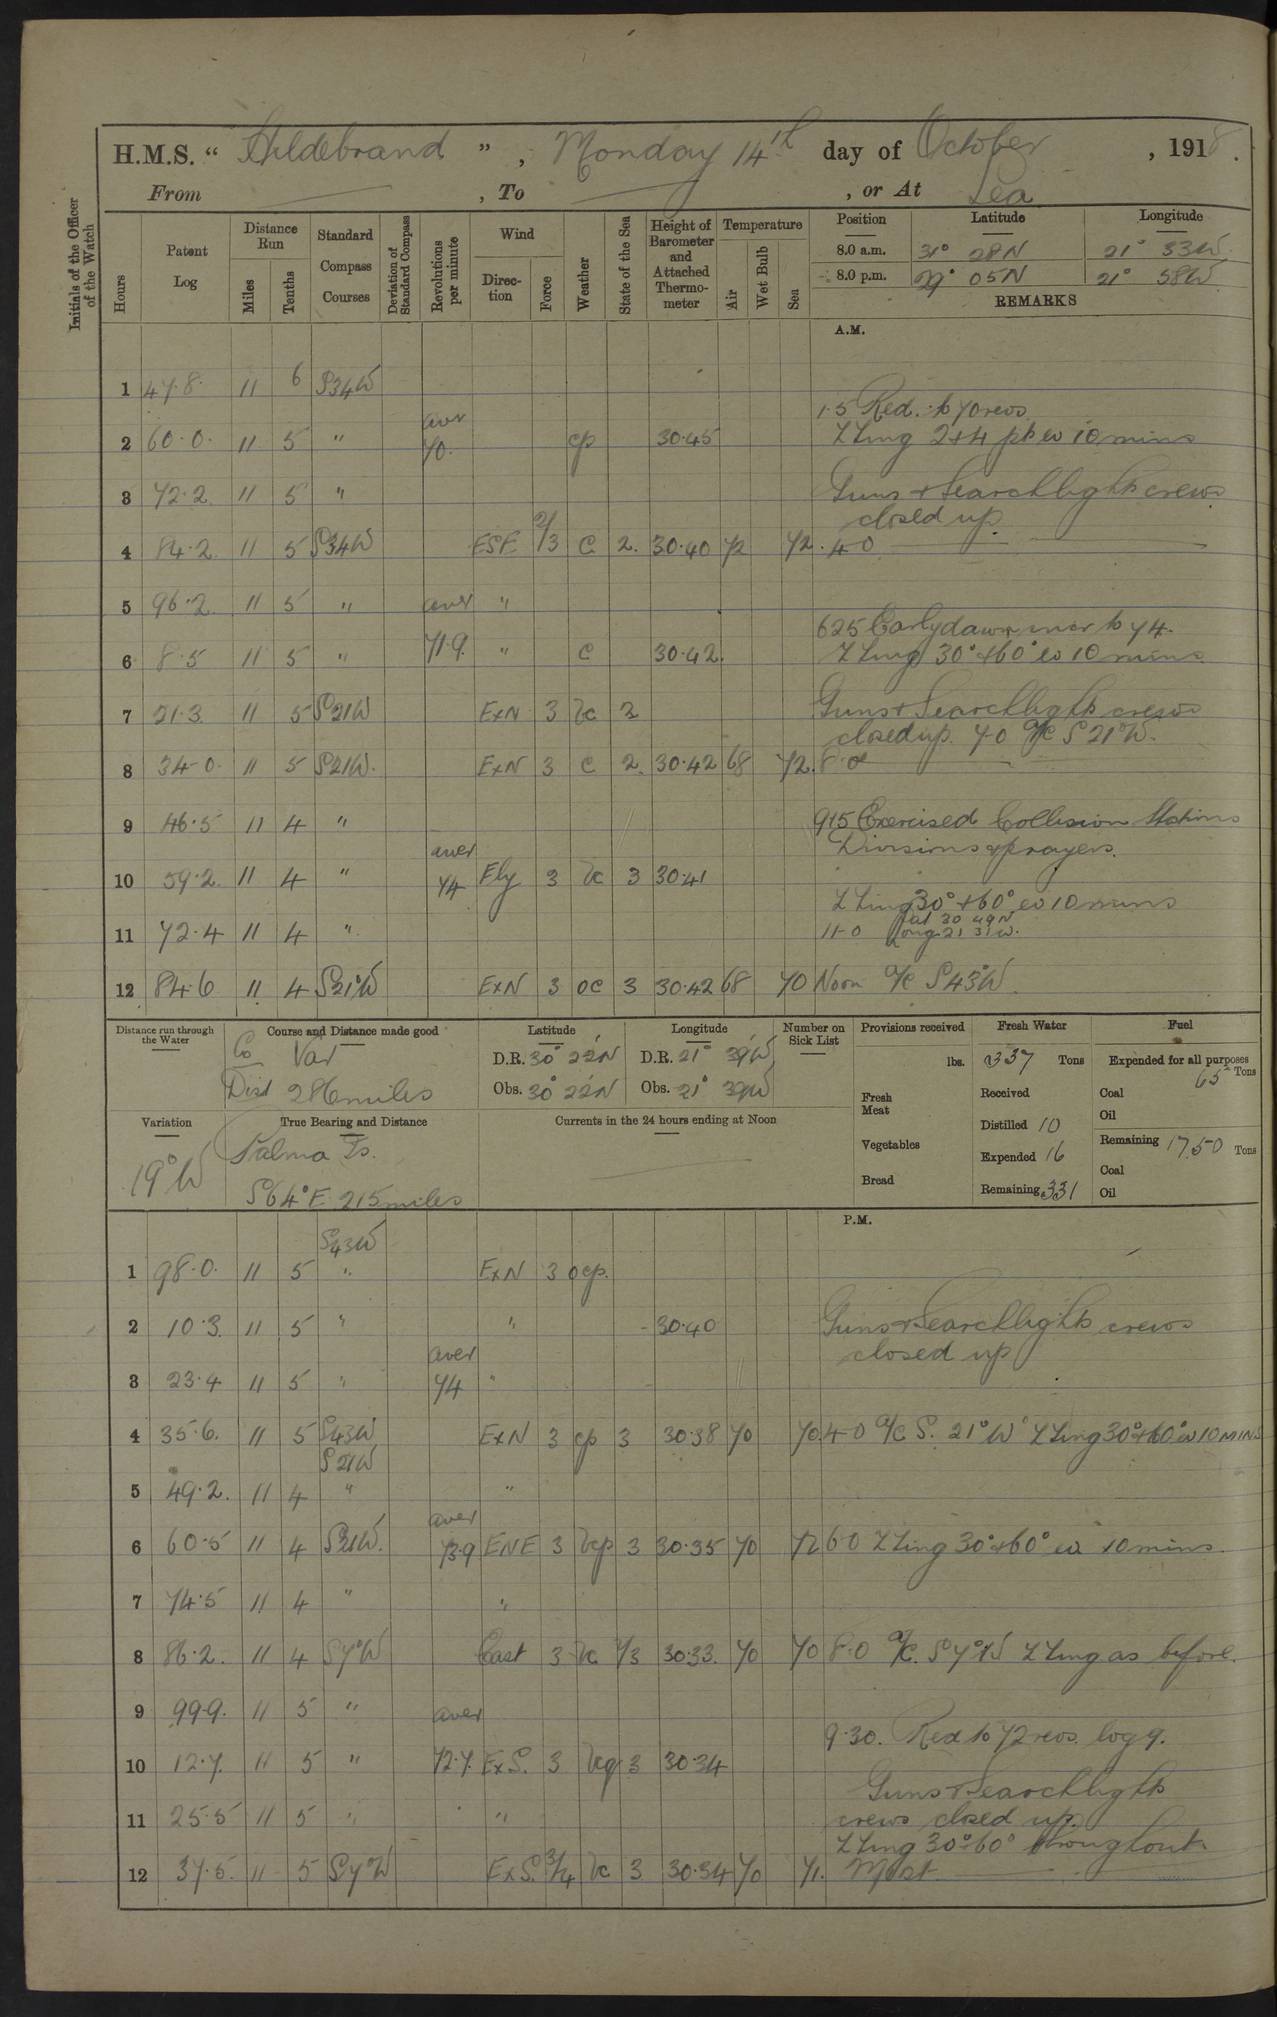 H.M.S. “ Hildebrand ” , Monday 14th day of October , 1918.
From , To , or At Sea
Initials of the Officer of the Watch
Hours
Patent Log
Distance Run
Miles
Tenths
Standard Compass Courses
Deviation of Standard Compass
Revolutions per minute
Wind
Direction
Force
Weather
State of the Sea
Height of Barometer and Attached Thermometer
Temperature
Air
Wet Bulb
Sea
Position Latitude Longitude
8.0 a.m. 31° 28N 21° 33W
8.0 p.m. 29° 05N 21° 58W
REMARKS
A.M.
1 47.8 11 6 S34W
1.5 Red. to 70 revs
2 60.0 11 5 " aver 70. cp 30.45 Z Zing 2+4 pts ev 10 mins
3 72.2 11 5 " Guns + Searchlights crews
closed up.
4 84.2 11 5 S34W ESE 2/3 C 2. 30.40 72 72. 4.0
5 96.2 11 5 " aver "
625 Early dawn incr to 74.
6 8.5 11 5 " 71.9 " C 30.42. Z Zing 30°+60° ev 10 mins
7 21.3 11 5 S21W ExN 3 bc 2 Guns + Searchlights crews
closed up. 7.0 a/c S21°W.
8 34.0 11 5 S21W. ExN 3 C 2. 30.42 68 72. 8.0
9 46.5 11 4 " 915 Exercised Collision Stations
Divisions & prayers.
10 59.2 11 4 " aver 74 Ely 3 bc 3 30.41
Z Zing 30°+60° ev 10 mins
Lat 30 49N
11 72.4 11 4 " 11.0 Long 21 31W.
12 84.6 11 4 S21°W ExN 3 oc 3 30.42 68 70 Noon a/c S43°W
Distance run through the Water
Course and Distance made good
Co Var
Dist 286 miles
Latitude
D.R. 30° 22'N
Obs. 30° 22'N
Longitude
D.R. 21° 39'W
Obs. 21° 39'W
Number on Sick List
Provisions received
lbs.
Fresh Meat
Vegetables
Bread
Fresh Water
337 Tons
Received
Distilled 10
Expended 16
Remaining 331
Fuel
Expended for all purposes
65 Tons
Coal
Oil
Remaining 1750 Tons
Coal
Oil
Variation
19°W
True Bearing and Distance
Palma Is.
S64°E 215 miles
Currents in the 24 hours ending at Noon
P.M.
S43W
1 98.0. 11 5 " ExN 3 ocp.
2 10.3 11 5 " " 30.40 Guns + Searchlights crews
closed up
3 23.4 11 5 " aver 74 "
4 35.6. 11 5 S43W ExN 3 cp 3 30.38 70 70. 4.0 a/c S. 21°W Z Zing 30°+60° ev 10 MINS
S21W
5 49.2. 11 4 " "
6 60.5 11 4 S21W. aver 73.9 ENE 3 bcp 3 30.35 70 72 6.0 Z Zing 30°+60° ev 10 mins.
7 74.5 11 4 " "
8 86.2. 11 4 S7°W East 3 bc 30.33. 70 70 8.0 a/c. S7°W Z Zing as before.
9 99.9. 11 5 " aver
9.30. Red to 72 revs. log 9.
10 12.7. 11 5 " 72.7. ExS. 3 3 30.34
Guns + Searchlights
11 25.5 11 5 " " crews closed up.
Z Zing 30°+60° throughout
12 37.5. 11 5 S7°W ExS. 3/4 bc 3 30.34 70 71. Midt